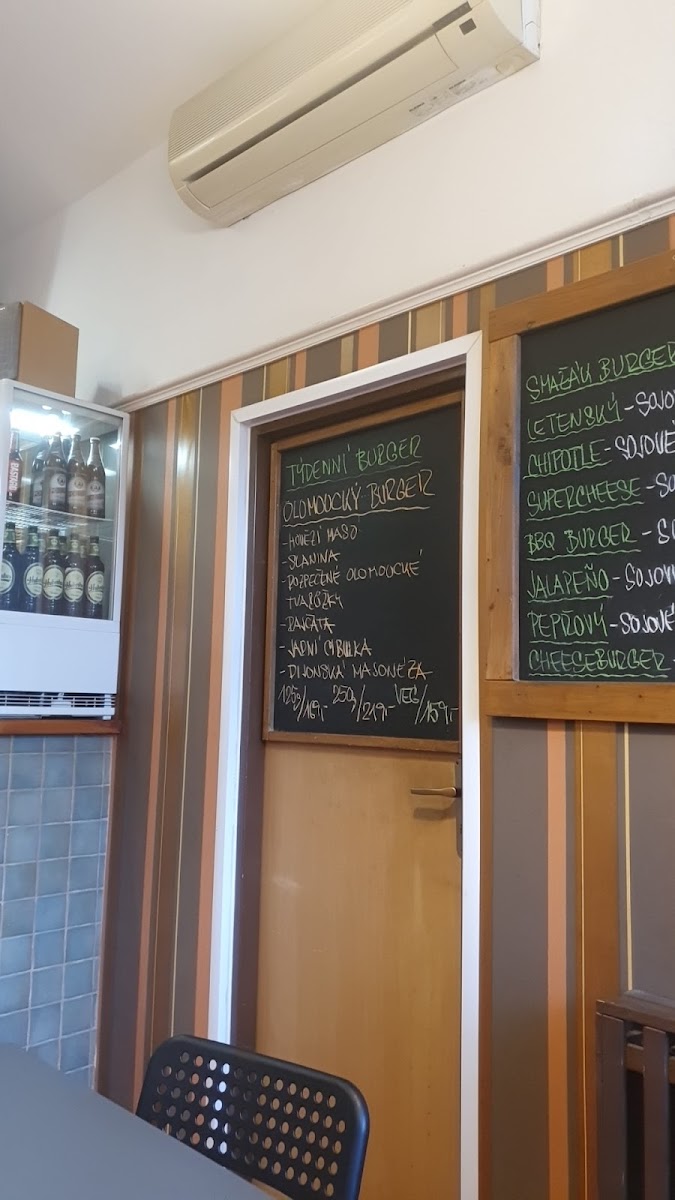 TÝDENNÍ BURGER
OLOMOUCKÝ BURGER
- HOVĚZÍ MASO
- SLANINA
- ROZPEČENÉ OLOMOUCKÉ
TVARŮŽKY
- RAJČATA
- JARNÍ CIBULKA
- DIJONSKÁ MAJONÉZA
125g/169,- 250g/219,- VEG/159,-
SMAŽÁK BURGER
LETENSKÝ - SOJOV
CHIPOTLE - SOJOVÉ
SUPERCHEESE - SO
BBQ BURGER - SO
JALAPEÑO - SOJOV
PEPŘOVÝ - SOJOVÉ
CHEESEBURGER -